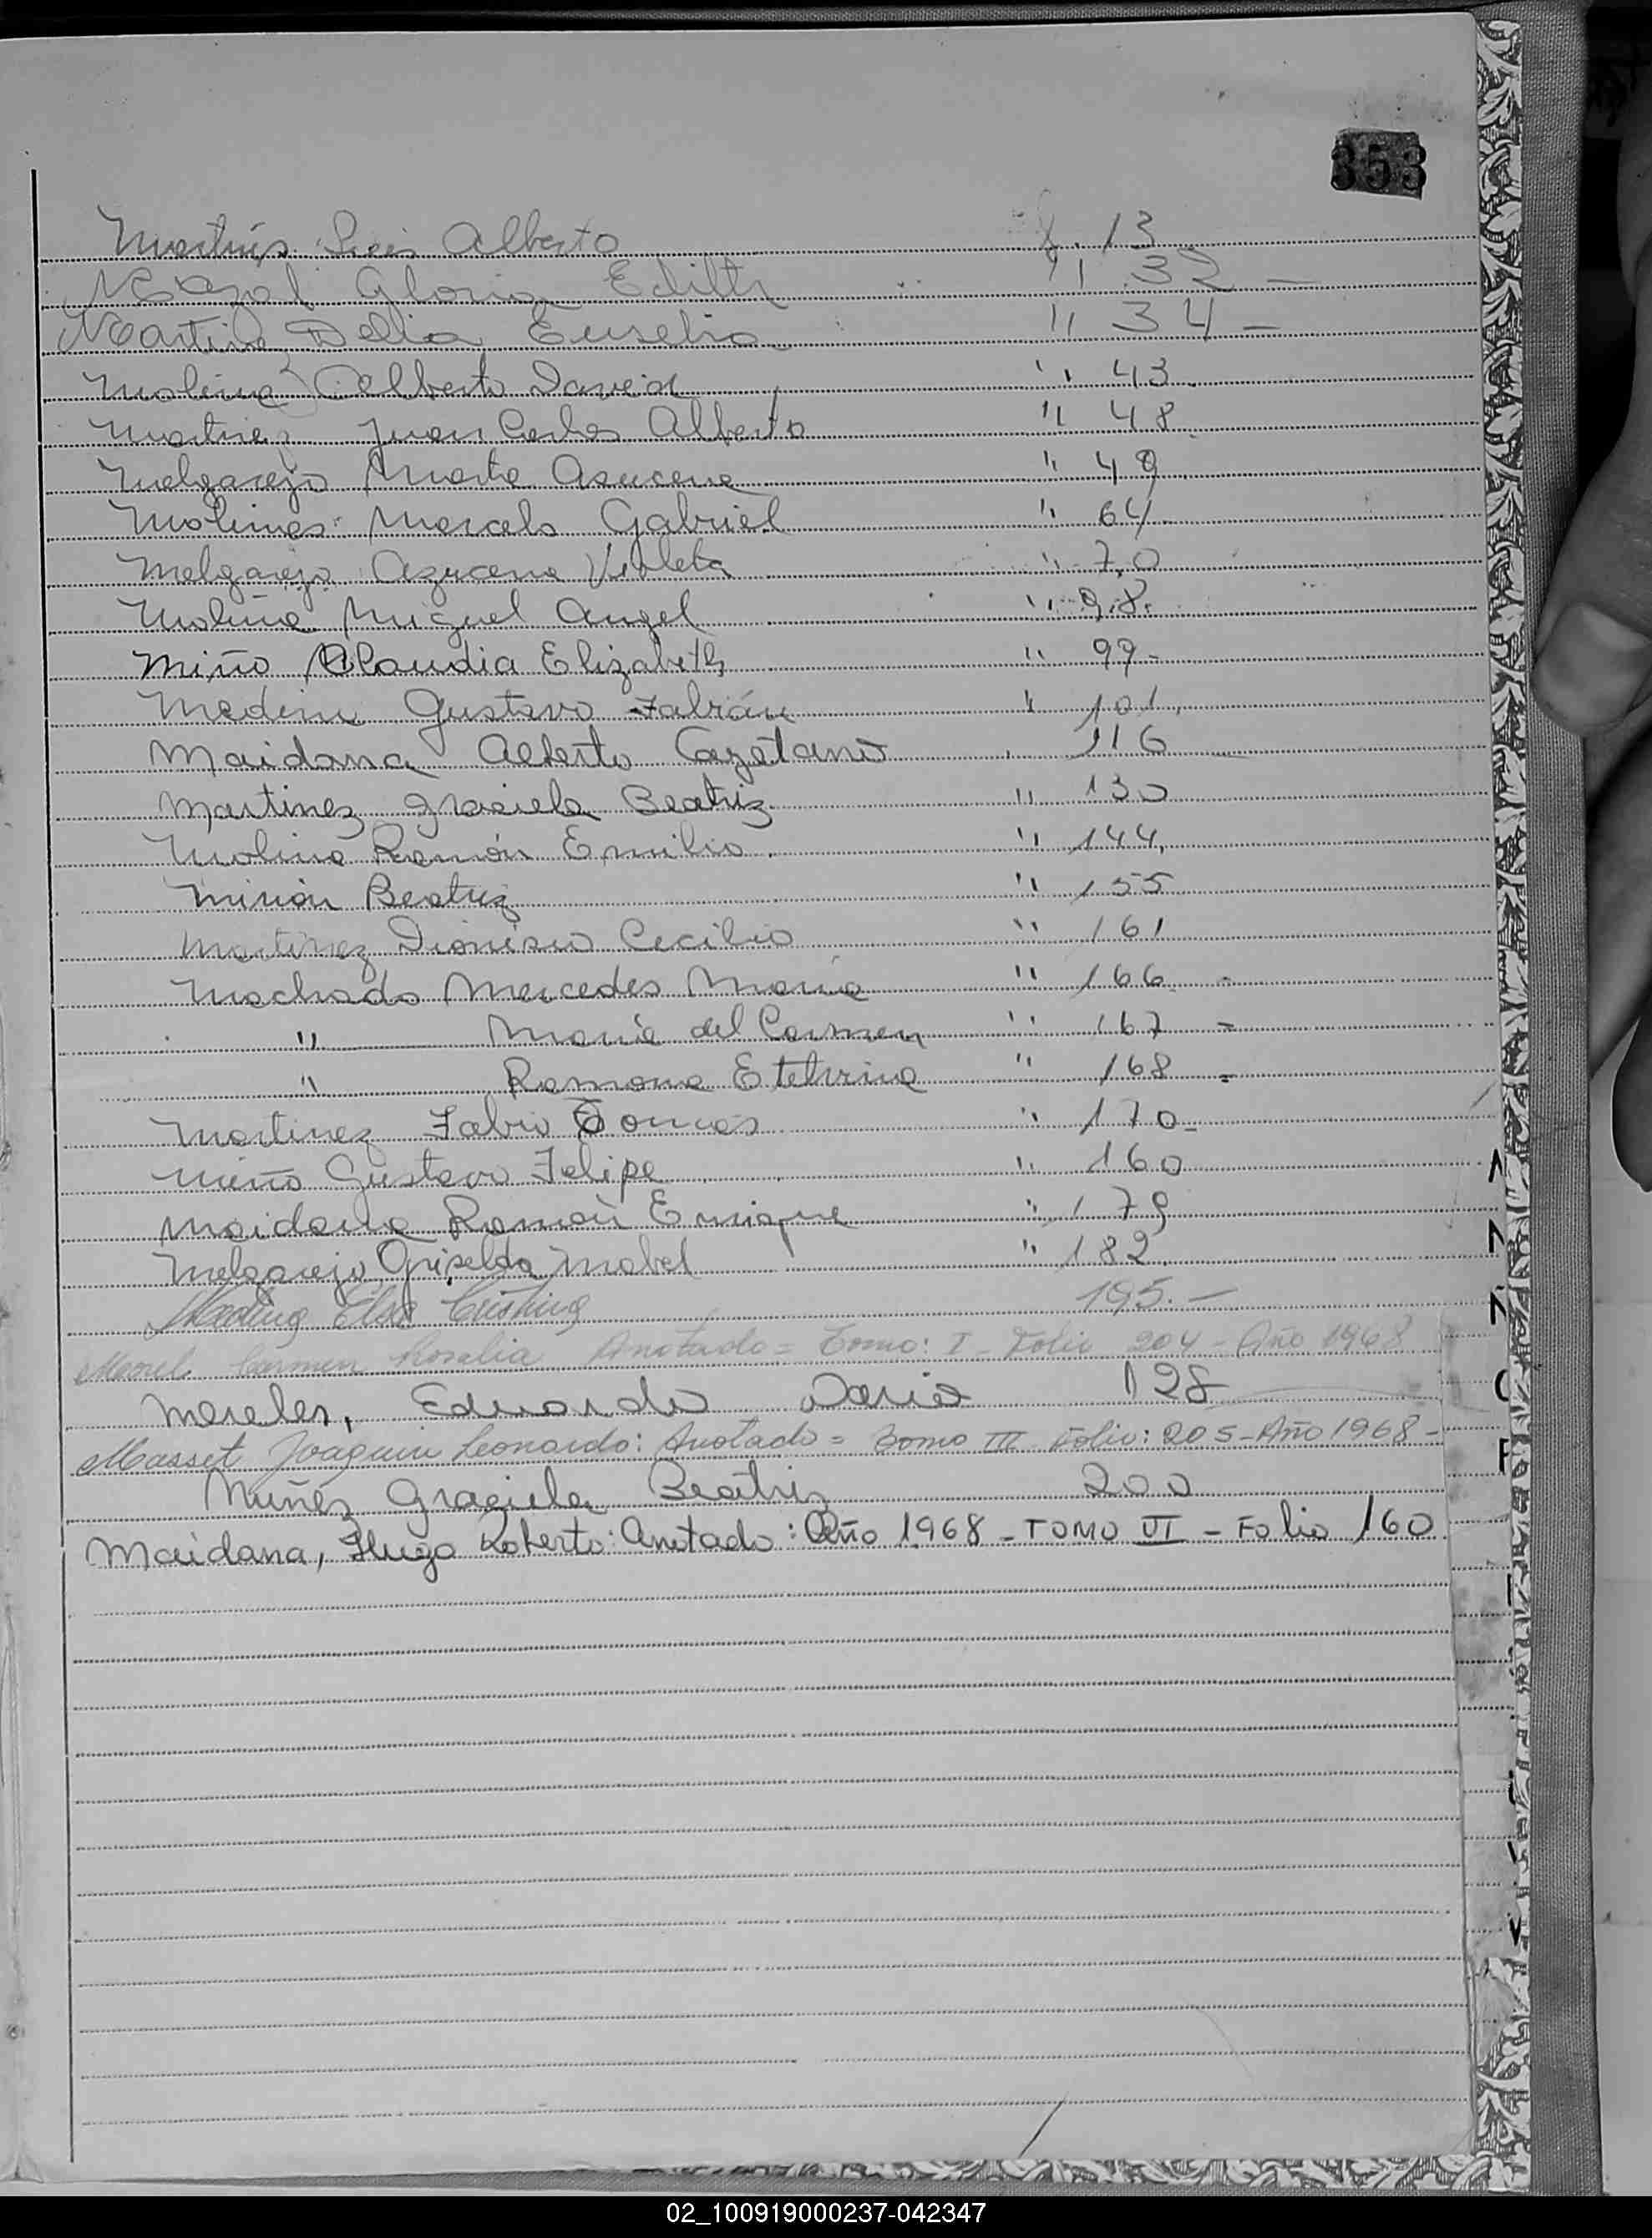 353
Martinez Luis Alberto f. 13
Mazal Gloria Edith " 32 —
Martinez Delia Eusebia " 34 —
Molina Alberto David " 43
Martinez Juan Carlos Alberto " 48
Melgarejo Marta Azucena " 49
Molines Marcelo Gabriel " 64
Melgarejo Azucena Violeta " 70
Molina Miguel Angel " 98
Miño Claudia Elizabeth " 99-
Medina Gustavo Fabián " 101
Maidana Alberto Cayetano 116
Martinez Graciela Beatriz " 130
Molina Ramón Emilio " 144
Miñón Beatriz " 155
Martinez Dionisio Cecilio " 161
Machado Mercedes María " 166 -
" María del Carmen " 167 =
" Ramona Etelvina " 168 =
Martinez Fabio Tomás " 170-
Miño Gustavo Felipe " 160
Maidana Ramón Enrique " 179
Melgarejo Griselda Mabel " 182
Elsa Cristina 195.-
Morel Carmen Rosalia Anotado = Tomo: I - Folio 204 - Año 1968
Mereles, Eduardo Dario 128
Masset Joaquin Leonardo: Anotado = Tomo III Folio: 205-Año 1968-
Nuñez Graciela Beatriz 200
Maidana, Hugo Roberto: Anotado: Año 1968 - TOMO VI - Folio 160
02_100919000237-042347